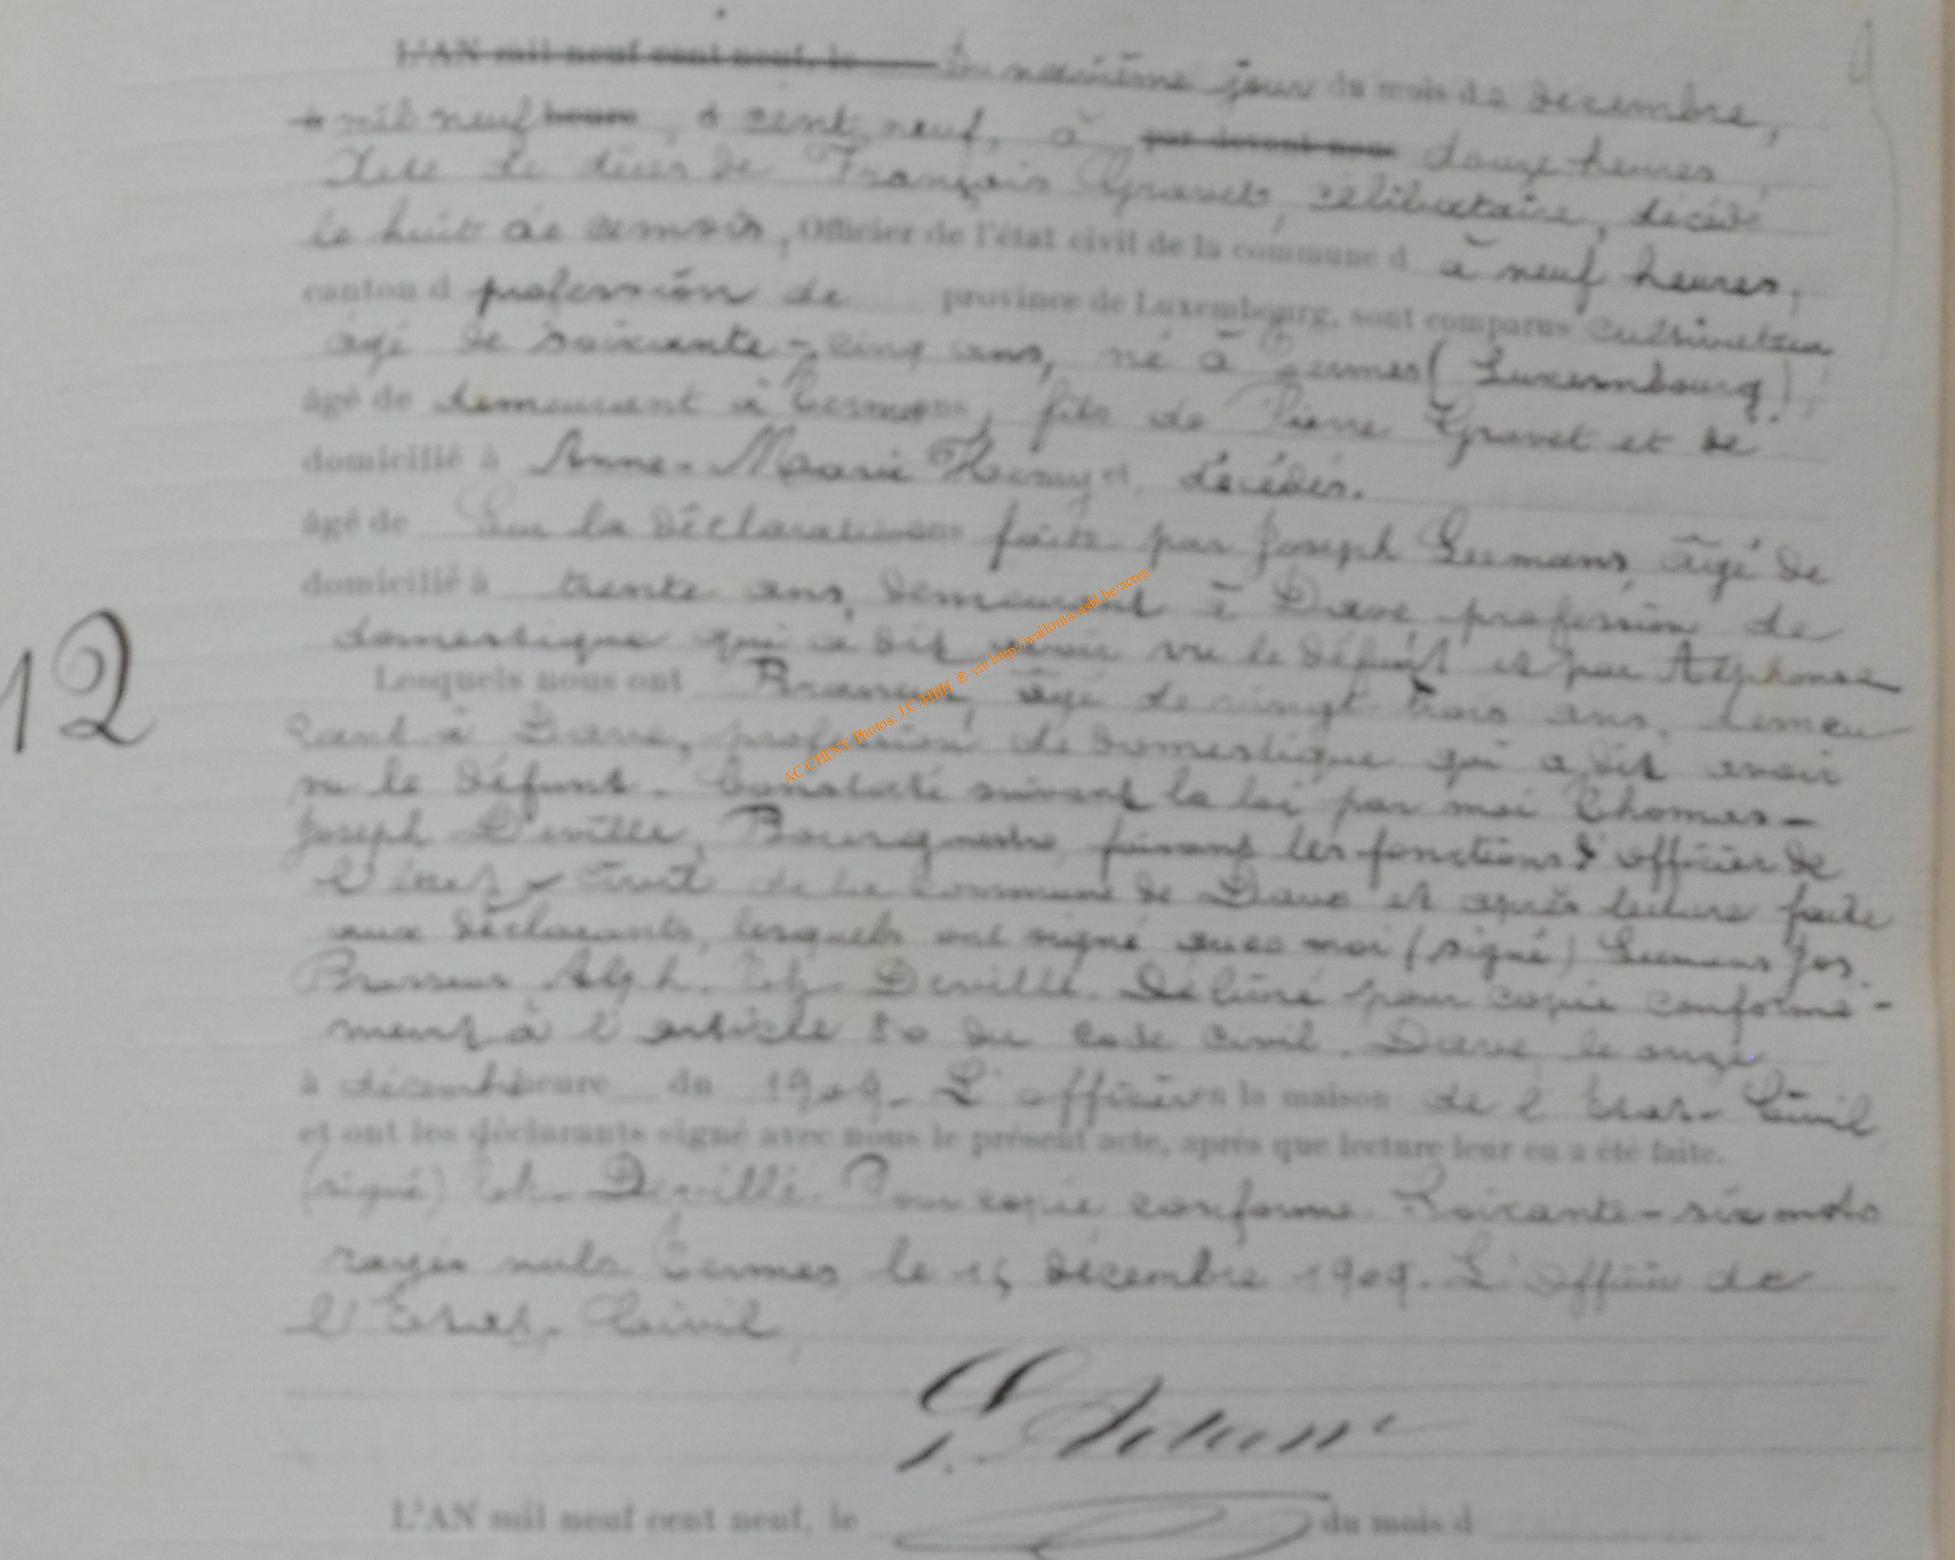 L'AN mil neuf cent neuf, le Du neuvième jour du mois de décembre,
à mil neuf heure & cent neuf, à par devant nous douze heures,
Acte de décès de François Gravet, célibataire, décédé
le huit de ce mois, Officier de l'état civil de la commune d à neuf heures,
canton d profession de province de Luxembourg, sont comparus cultivateur
âgé de soixante-cinq ans, né à Termes (Luxembourg),
âgé de demeurant à Termes ans, fils de Pierre Gravet et de
domicilié à Anne-Marie et, décédés.
âgé de Sur la déclaration ans faite par Joseph Leemans, âgé de
domicilié à trente ans, demeurant à Dave profession de
domestique qui a dit avoir vu le défunt et par Alphonse
Lesquels nous ont Brasseur, âgé de vingt trois ans, demeu
rant à Dave, profession de domestique qui a dit avoir
vu le défunt. Constaté suivant la loi par moi Thomas-
Joseph Deville, Bourgmestre, faisant les fonctions d'officier de
l'Etat-Civil de la commune de Dave et après lecture faite
aux déclarants, lesquels ont signé avec moi (signé) Leemans Jos.
Brasseur Alph. Th. Deville. Délivré pour copie conformé-
ment à l'article 80 du code civil. Dave, le onze
à décembre heure du 1909. L'officier en la maison de l'Etat-Civil
et ont les déclarants signé avec nous le présent acte, après que lecture leur en a été faite.
(signé) Th. Deville. Pour copie conforme. Soixante-six mots
rayés nuls. Termes, le 15 décembre 1909. L'officier de
l'Etat-Civil,
12
AC CHINY Photos: J.C.HBH ® via http://wallonia-asbl.be/actes
L'AN mil neuf cent neuf, le du mois d